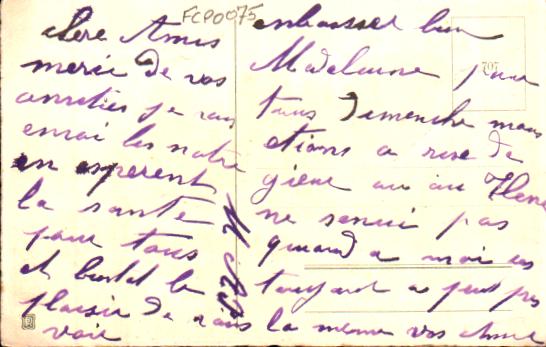 FCP0075
chere Amis
merci de vos
amities je vous
envoi les notre
en esperent
la santé
pour tous
et bientot le
plaisir de vous
voir
embrasser bien
Madelaine pour
tous Dimenche nous
etions a rive de
gier
ne senui pas
quand a moi
toujours a peut pres
la meme vos Amie
707